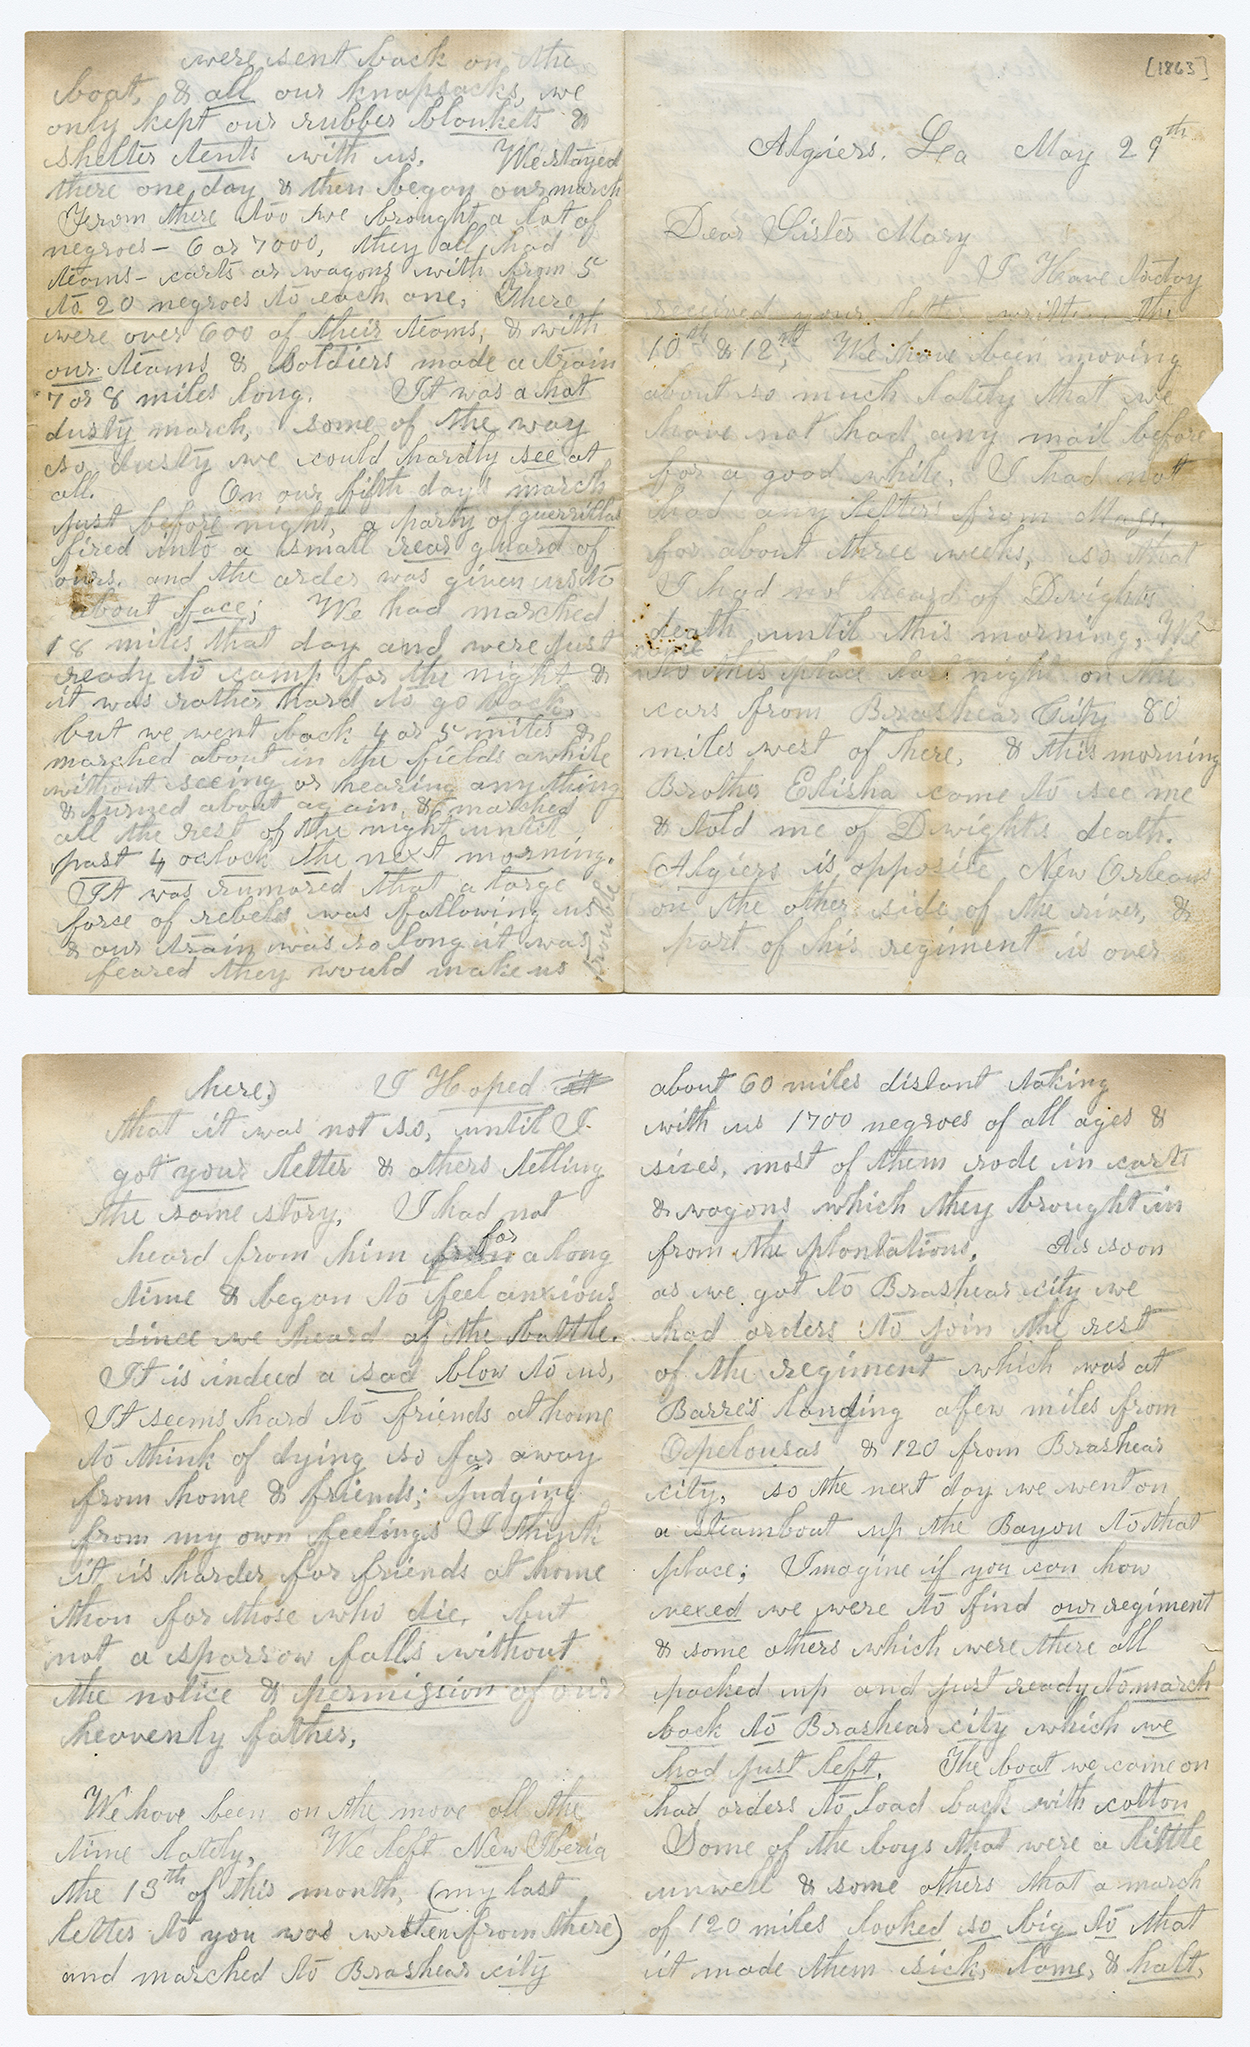 [1863]
Algiers. La May 29th
Dear Sister Mary
I Have today
received your letter written the
10th & 12th, We have been moving
about so much lately that we
have not had any mail before
for a good while, I had not
had any letters from Mass.
for about three weeks, so that
I had not heard of Dwights
death until this morning, We
came
to this place last night on the
cars from Brashear City 80
miles west of here, & this morning
Brother Elisha came to see me
& told me of Dwights death.
(Algiers is opposite New Orleans
on the other side of the river, &
part of his regiment is over
here) I Hoped it
that it was not so, until I
got your letter & others telling
the same story, I had not
heard from him from for a long
time & began to feel anxious
since we heard of the battle.
It is indeed a sad blow to us,
It seems hard to friends at home
to think of dying so far away
from home & friends; judging
from my own feelings I think
it is harder for friends at home
than for those who die, but
not a sparrow falls without
the notice & permission of our
heavenly father,
We have been on the move all the
time lately, We left New Iberia
the 13th of this month, (my last
letter to you was written from there)
and marched to Brashear city
about 60 miles distant taking
with us 1700 negroes of all ages &
sizes, most of them rode in carts
& wagons which they brought in
from the plantations. As soon
as we got to Brashear city we
had orders to join the rest
of the regiment which was at
Barre's landing a few miles from
Opelousas & 120 from Brashear
city, so the next day we went on
a steamboat up the Bayou to that
place; Imagine if you can how
vexed we were to find our regiment
& some others which were there all
packed up and just ready to march
back to Brashear city which we
had just left. The boat we came on
had orders to load back with cotton
Some of the boys that were a little
unwell & some others that a march
of 120 miles looked so big to that
it made them sick, lame, & halt,
were sent back on the
boat, & all our knapsacks, we
only kept our rubber blankets &
shelter tents with us. We stayed
there one day & then began our march
From there too we brought a lot of
negroes - 6 or 7000, they all had
teams - carts or wagons with from 5
to 20 negroes to each one, There
were over 600 of their teams, & with
our teams & soldiers made a train
7 or 8 miles long. It was a hot
dusty march, some of the way
so dusty we could hardly see at
all. On our fifth day's march
just before night, a party of guerrillas
fired into a small rear guard of
ours, and the order was given us to
about face; We had marched
18 miles that day and were just
ready to camp for the night &
it was rather hard to go back,
but we went back 4 or 5 miles &
marched about in the fields awhile
without seeing or hearing any thing
& turned about again, & marched
all the rest of the night until
past 4 oclock the next morning.
It was rumored that a large
force of rebels was following us
& our train was so long it was
feared they would make us
trouble